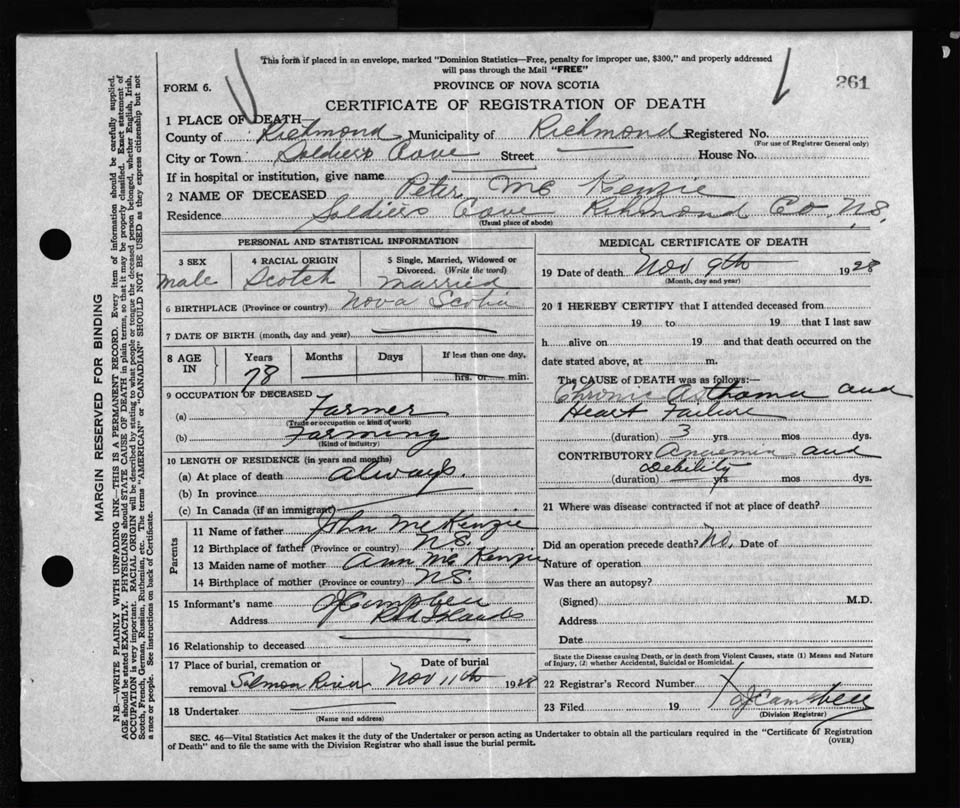 This form if placed in an envelope, marked "Dominion Statistics—Free, penalty for improper use, $300," and properly addressed
will pass through the Mail "FREE"
FORM 6.
PROVINCE OF NOVA SCOTIA
261
CERTIFICATE OF REGISTRATION OF DEATH
1 PLACE OF DEATH—
County of Richmond Municipality of Richmond Registered No.
(For use of Registrar General only)
City or Town Soldiers Cove Street House No.
If in hospital or institution, give name
2 NAME OF DECEASED Peter Mc Kenzie
Residence Soldiers Cove Richmond Co. N.S.
(Usual place of abode)
PERSONAL AND STATISTICAL INFORMATION
3 SEX Male
4 RACIAL ORIGIN Scotch
5 Single, Married, Widowed or Divorced. (Write the word) Married
6 BIRTHPLACE (Province or country) Nova Scotia
7 DATE OF BIRTH (month, day and year)
8 AGE IN Years Months Days If less than one day,
78 hrs. or min.
9 OCCUPATION OF DECEASED
(a) Farmer
(Trade or occupation or kind of work)
(b) Farming
(Kind of industry)
10 LENGTH OF RESIDENCE (in years and months)
(a) At place of death always.
(b) In province
(c) In Canada (if an immigrant)
Parents
11 Name of father John McKenzie
12 Birthplace of father (Province or country) N.S.
13 Maiden name of mother Ann Mc Kenzie
14 Birthplace of mother (Province or country) N.S.
15 Informant's name J Campbell
Address Red Islands
16 Relationship to deceased
17 Place of burial, cremation or removal Salmon River
Date of burial Nov 11th 1928
18 Undertaker
(Name and address)
MEDICAL CERTIFICATE OF DEATH
19 Date of death Nov 9th 1928
(Month, day and year)
20 I HEREBY CERTIFY that I attended deceased from
19 to 19 that I last saw
h alive on 19 and that death occurred on the
date stated above, at m.
The CAUSE of DEATH was as follows:—
Chronic Asthma and
Heart Failure
(duration) 3 yrs mos dys.
CONTRIBUTORY Anaemia and
debility
(duration) yrs mos dys.
21 Where was disease contracted if not at place of death?
Did an operation precede death? No. Date of
Nature of operation
Was there an autopsy?
(Signed) M.D.
Address
Date
State the Disease causing Death, or in death from Violent Causes, state (1) Means and Nature
of Injury, (2) whether Accidental, Suicidal or Homicidal.
22 Registrar's Record Number
23 Filed 19 J Campbell
(Division Registrar)
SEC. 46—Vital Statistics Act makes it the duty of the Undertaker or person acting as Undertaker to obtain all the particulars required in the "Certificate of Registration
of Death" and to file the same with the Division Registrar who shall issue the burial permit.
(OVER)
MARGIN RESERVED FOR BINDING
N.B.—WRITE PLAINLY WITH UNFADING INK—THIS IS A PERMANENT RECORD. Every item of information should be carefully supplied.
AGE should be stated EXACTLY. PHYSICIANS should STATE CAUSE OF DEATH in plain terms, so that it may be properly classified. Exact statement of
OCCUPATION is very important. RACIAL ORIGIN will be described by stating to what people or tongue the deceased person belonged, whether English, Irish,
Scotch, French, German, Russian, Ruthenian, etc. The terms "AMERICAN" or "CANADIAN" SHOULD NOT BE USED as they express citizenship but not
a race or people. See instructions on back of Certificate.